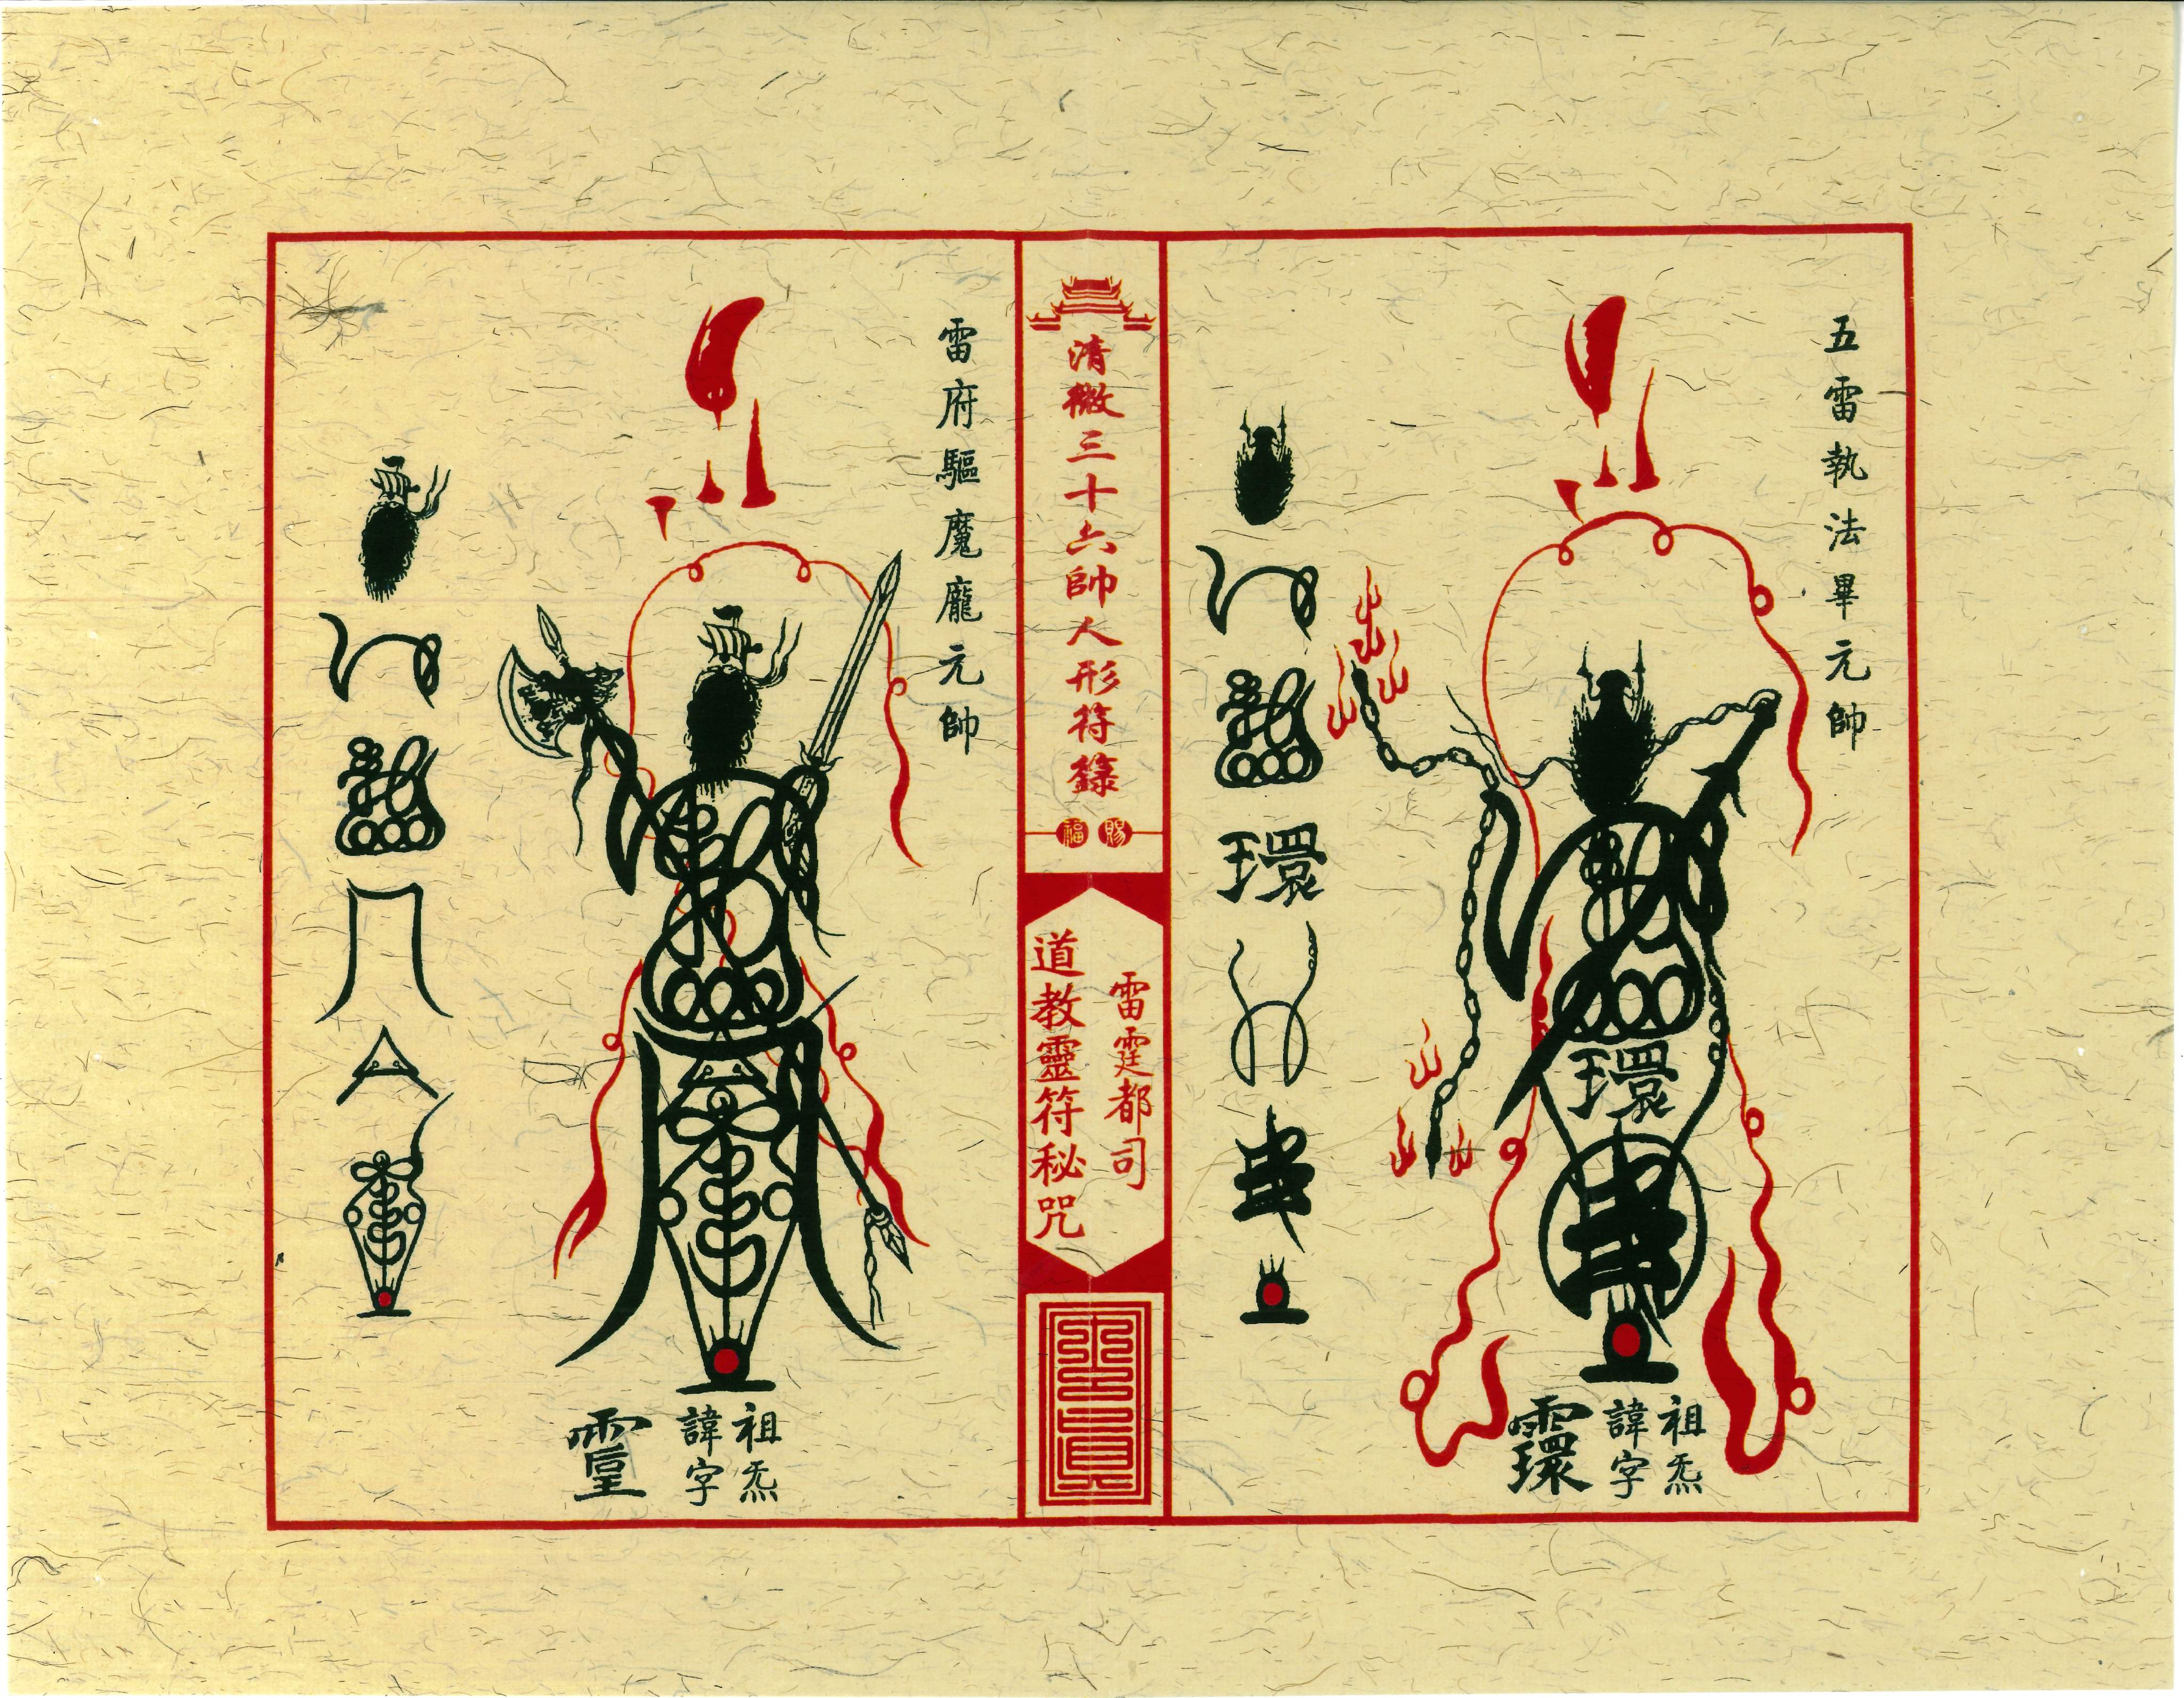 五雷執法畢元帥
環
環
祖炁
諱字
清微三十六帥人形符籙
賜福
雷霆都司
道教靈符秘咒
雷府驅魔龐元帥
祖炁
諱字